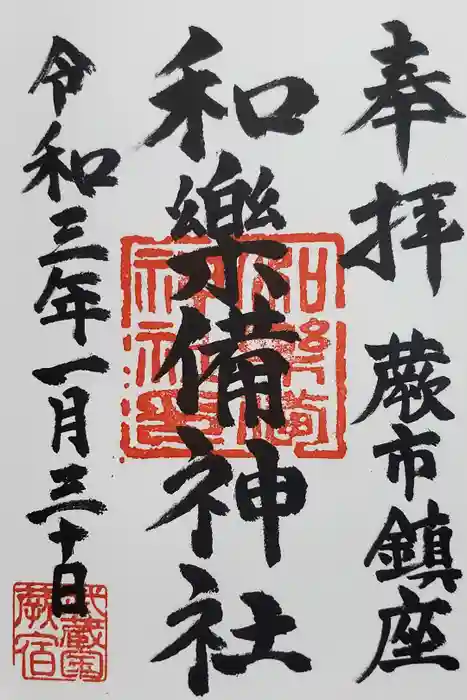 奉拝 蕨市鎮座
和樂備神社
和樂備神社印
令和三年一月三十日
武蔵国蕨宿